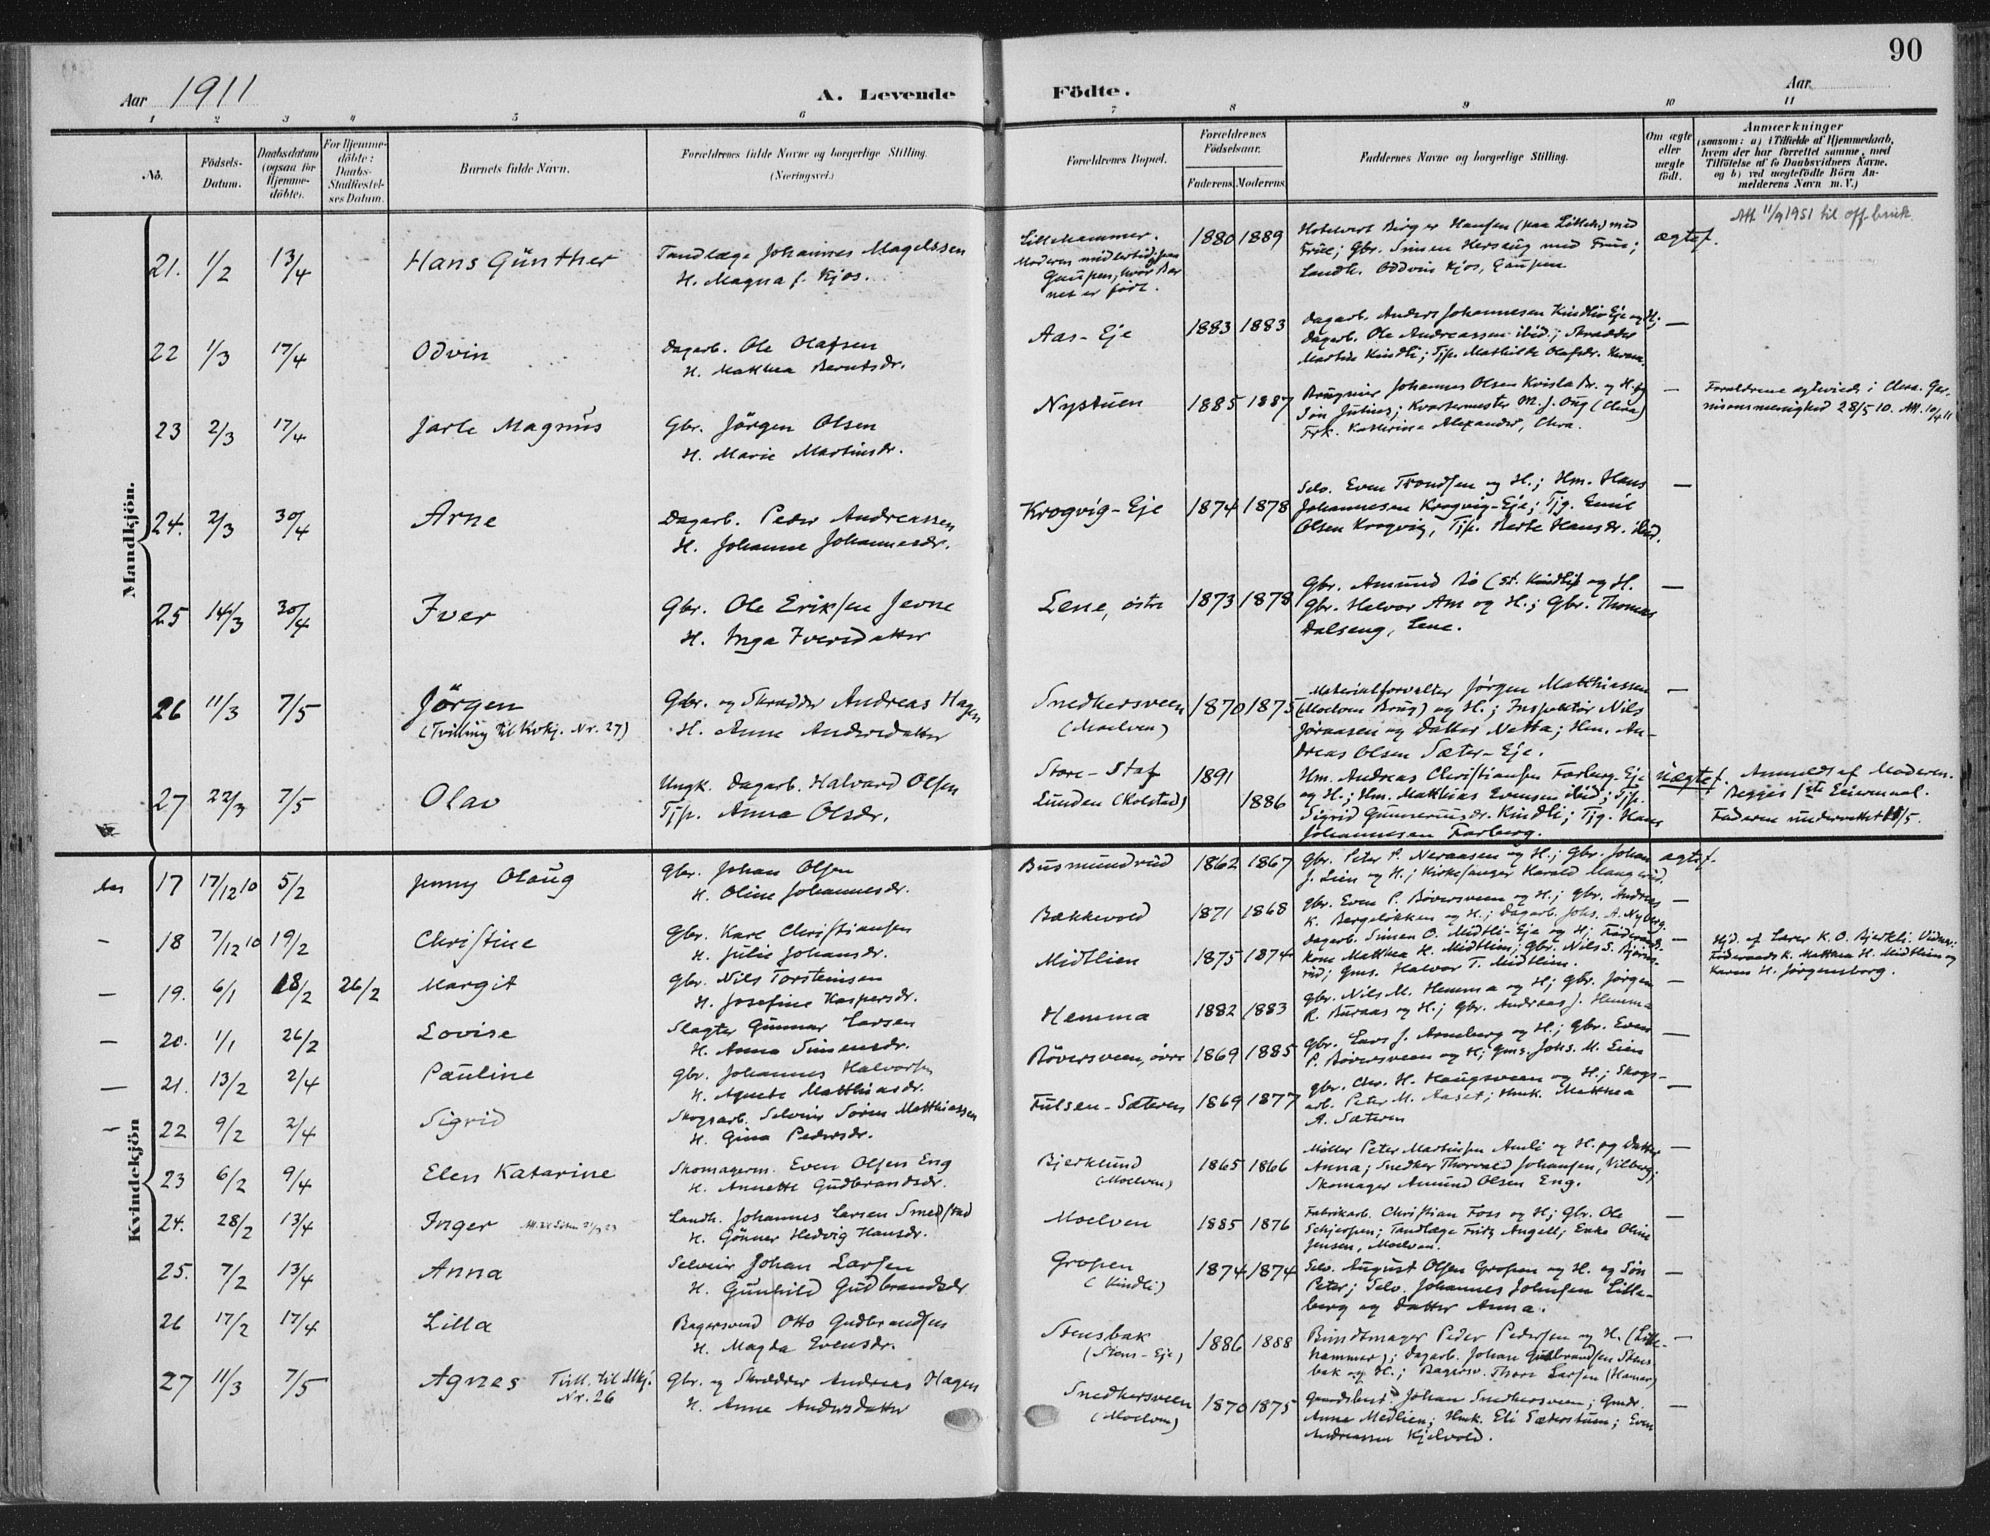 90
Aar 1911
A. Levende Födte.
Aar
1 2 3 4 5 6 7 8 9 10 11
No.
Födsels-Datum.
Daabsdatum (ogsaa for Hjemmedöbte).
For Hjemmedöbte: Daabs-Stadfæstelses Datum.
Barnets fulde Navn.
Forældrenes fulde Navne og borgerlige Stilling. (Næringsvei.)
Forældrenes Bopæl.
Forældrenes Födselsaar.
Faderens Moderens
Faddernes Navne og borgerlige Stilling.
Om ægte eller uægte födt.
Anmærkninger
(saasom: a) i Tilfælde af Hjemmedaab, hvem der har forrettet samme, med Tilföielse af to Daabsvidners Navne, og b) ved uægtefödte Börn Anmelderens Navn m. V.)
Mandkjön.
21. 1/2 13/4 Hans Günther
Tandlæge Johannes Magelssen
H. Magna f. Kjos.
Lillehammer.
Moderen midlertidig paa
Gaupen, hvor Bar
net er født.
1880 1889
Hotelvert Birger Hansen (paa Lilleh.) med
Frue; Gbr. Simen Hersaug med Frue;
Landh. Oddvin Kjos, Gaupen
ægtef.
Att. 11/9 1951 til off. bruk.
22 1/3 17/4 Odvin
Dagarb. Ole Olafsen
H. Mathea Berntsdr.
Aas-Eje
1883 1883
Dagarb. Anders Johannesen Kindli-Eje og H;
Dagarb. Ole Andreassen ibid; Skrædder
Martin Kindli; Tjp. Mathilde Olafsdr.
—
23 2/3 17/4 Jarle Magnus
Gbr. Jörgen Olsen
H. Marie Martinsdr.
Nystuen
1885 1887
Johannes Olsen Kvisla Br. og H. og
Søn Julius; Kvartermester M. J. (Elvra)
Frk. Katherina Alexander, Elvra.
—
Forældrene egteviede i Elvra. Gar-
nisonsmenighed 28/5 10. Att. 10/4 11
24. 2/3 30/4 Arne
Dagarb. Peder Andreassen
H. Johanne Johannesdr.
Krogvig-Eje
1874 1878
Selv. Even Trondsen og H.; Hm. Hans
Johannesen Krogvig-Eje; Tjg. Emil
Olsen Krogvig, Tjp. Berte Hansdr. ibid.
—
25 14/3 30/4 Iver
Gbr. Ole Eriksen Jevne
H. Inga Iversdatter
Lene, østre
1873 1878
Gbr. Amund Bö (st. Kindli) og H.
Gbr. Helvor Am og H.; Gbr. Thomas
Dalseng, Lene.
—
26 11/3 7/5 Jörgen
(Tvilling til Kvkj. Nr. 27)
Gbr. og Skrædder Andreas Hagen
H. Anne Andersdatter
Snedkersveen
(Moelven)
1870 1875
Materialforvalter Jörgen Matthiassen
(Moelven Brug) og H.; Inspektör Nils
Jöraasen og Datter Netta; Hm. An-
dreas Olsen Sæter-Eje.
—
27 22/3 7/5 Olav
Ungk. Dagarb. Halvard Olsen
Tjp. Anna Olsdr.
Store-Staf
Lunden (Kolstad)
1891
1886
Hm. Andreas Christiansen Farberg-Eje
og H.; Hm. Matthias Evensen ibid; Tjp.
Sigrid Gunnerinsdr. Kindli; Tjg. Hans
Johannesen Farberg.
uægtef.
Anmeldt af Moderen.
Begges 1ste Leiermaal.
Faderen underrettet 11/5.
Kvindekjön
17 17/12 10 5/2 Jenny Olaug
Gbr. Johan Olsen
H. Oline Johannesdr.
Busmundrud
1862 1867
Gbr. Peter P. Neraasen og H.; Gbr. Johan
J. Lien og H.; Kirkesanger Harald Mangerud.
ægtef.
— 18 7/12 10 19/2 Christine
Gbr. Karl Christiansen
H. Julie Johansdr.
Bækkevold
1871 1868
Gbr. Even P. Böversveen og H.; Gbr. Andreas
K. Bergeløkken og H.; Dagarb. Johs. A. Nyberg.
—
— 19. 6/1 18/2 26/2 Margit
Gbr. Nils Torsteinsen
H. Josefine Kaspersdr.
Midtlien
1875 1874
Dagarb. Simen O. Midtli-Eje og H; Föderaads-
kone Matthea H. Midtlien; Gbr. Nils S. Björns-
rud; Gms. Halvor T. Midtlien.
—
Hjd. af Lærer K. O. Bjerkli. Vidner:
Föderaads K. Mathea H. Midtlien og
Karen H. Jørgensborg.
— 20. 1/1 26/2 Lovise
Slagter Gunnar Larsen
H. Anna Simensdr.
Hemma
1882 1883
Gbr. Nils M. Hemma og H; Gbr. Jørgen
R. Buraas og H; Gbr. Andreas J. Hemma
—
— 21. 13/2 2/4 Pauline
Gbr. Johannes Halvorsen
H. Agnete Matthiasdr.
Böversveen, övre
1869 1885
Gbr. Lars J. Arneberg og H.; Gbr. Even
P. Böversveen og H; Gms. Johs. M. Lien
—
— 22 9/2 2/4 Sigrid
Skogsarb. Selveier Sören Matthiassen
H. Gina Pedersdr.
Fulsen-Sæteren
1869 1877
Gbr. Chr. H. Haugsveen og H.; Skogs-
arb. Peter M. Aaset; Hmk. Mathea
A. Sæteren
—
23 6/2 9/4 Elen Katarine
Skomagerm. Even Olsen Eng
H. Annette Gudbrandsdr.
Bjerklund
(Moelven)
1865 1866
Møller Peter Martinsen Amli og H. og Datter
Anna; Snedker Thorvald Johansen, Vilberg;
Skomager Amund Olsen Eng.
—
24. 28/2 13/4 Inger
Landh. Johannes Larsen Smedstad
H. Gönner Hedvig Hansdr.
Moelven
1885 1876
Fabrikarb. Christian Foss og H; Gbr. Ole
Schjerpen; Tandlæge Fritz Angell; Enke Oline
Jensen, Moelven.
—
25. 7/2 13/4 Anna
Selveier Johan Larsen
H. Gunhild Gudbrandsdr
Gropen
(Kindli)
1874 1874
Selv. August Olsen Gropen og H. og Søn
Peter; Selv. Johannes Johnsen Lille-
berg og Datter Anna.
—
26 17/2 17/4 Lilla
Bagersvend Otto Gudbrandsen
H. Magda Evensdr.
Stensbak
(Stens-Eje)
1886 1888
Bundtmager Peder Pedersen og H. (Lille-
hammer); Dagarb. Johan Gudbrandsen Stens
bak og H.; Bagersv. Thore Larsen (Hamar)
—
27 11/3 7/5 Agnes Tvill. til Mkj. Nr. 26
Gbr. og Skrædder Andreas Hagen
H. Anne Andersdatter
Snedkersveen
(Moelven)
1870 1875
Johan Snedkersveen; Gmdr.
Anne Medlien; Hmk. Eli Sæterstuen; Even
Andreassen Kjelvold.
—